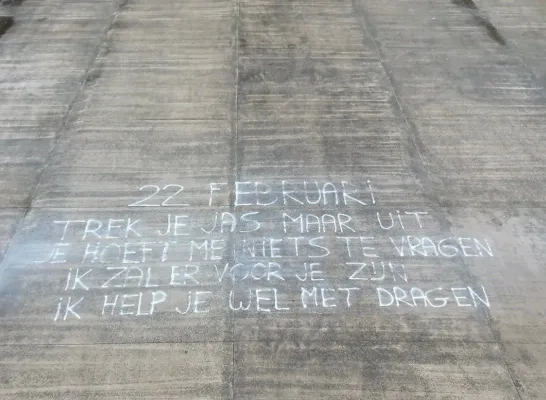 22 FEBRUARI
TREK JE JAS MAAR UIT
JE HOEFT ME NIETS TE VRAGEN
IK ZAL ER VOOR JE ZIJN
IK HELP JE WEL MET DRAGEN